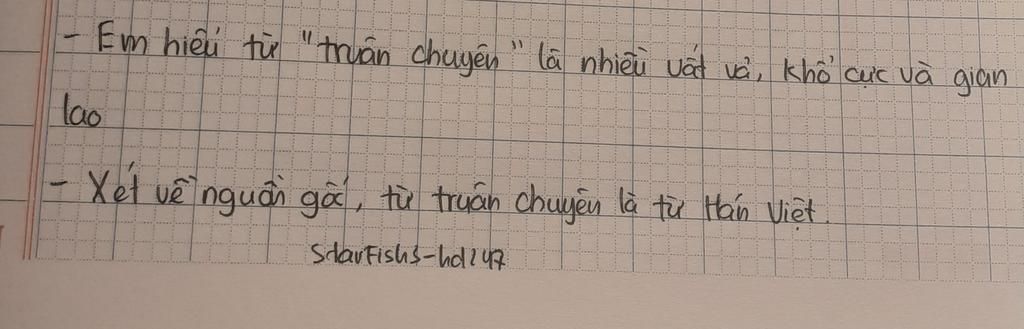 - Em hiểu từ "truân chuyên" là nhiều vất vả, khổ cực và gian
lao
- Xét về nguồn gốc, từ truân chuyên là từ Hán Việt.
StarFish3-hd247